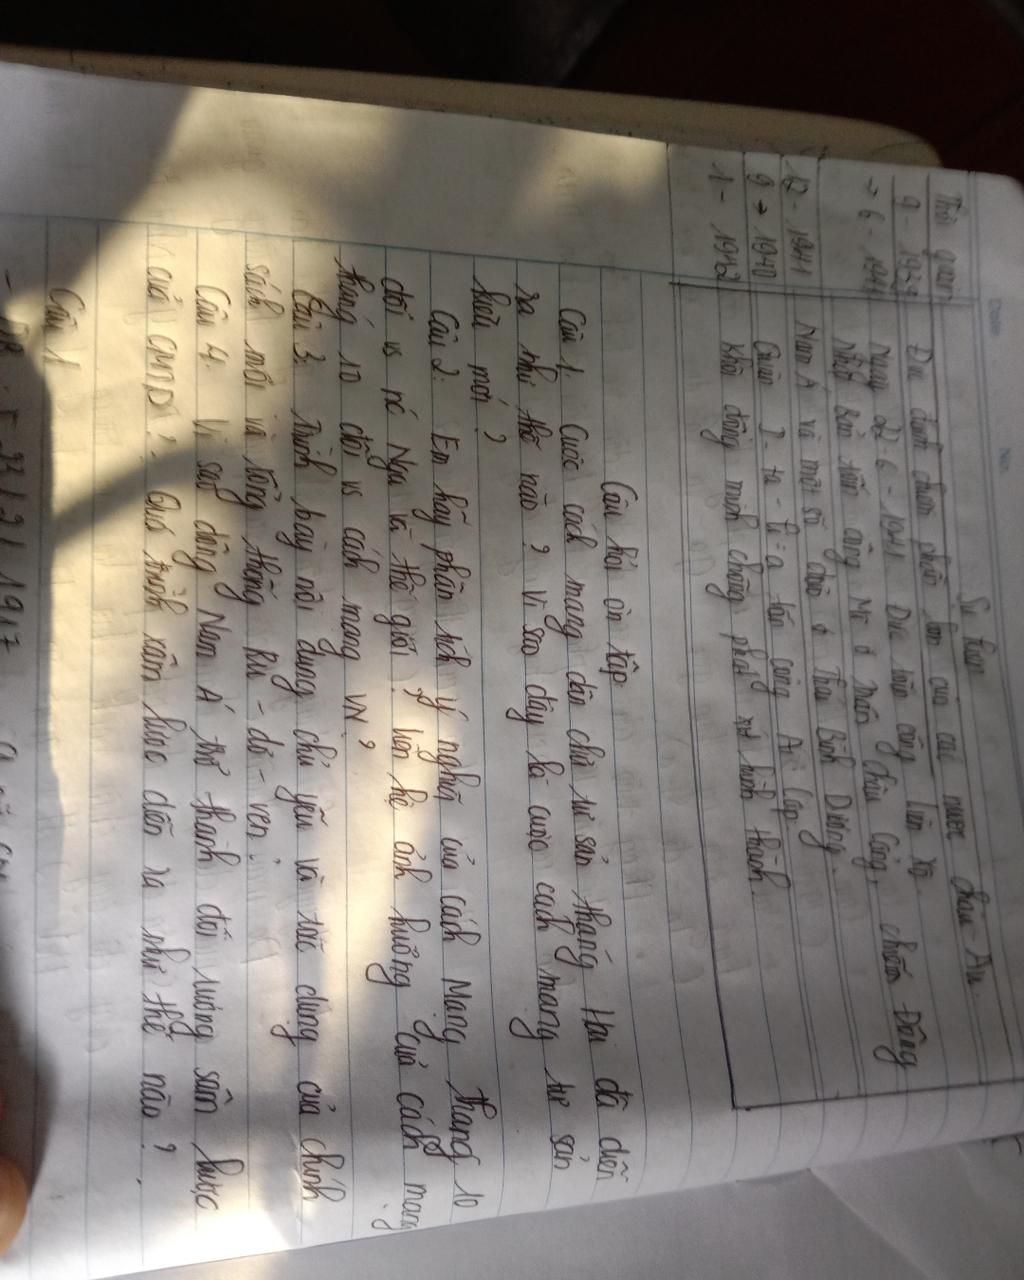 Thời gian Sự kiện
9 - 1939 Đức đánh chiếm phần lớn của các nước châu Âu
→ 6 - 1941 Ngày 22-6-1941 Đức tấn công Liên Xô
Nhật Bản tấn công Mĩ ở Trân Châu Cảng, chiếm Đông
12 - 1941 Nam Á và một số đảo ở Thái Bình Dương.
9 → 1940 Quân I-ta-li-a tấn công Ai Cập
1 - 1942 Khối đồng minh chống phát xít hình thành.
Câu hỏi ôn tập
Câu 1. Cuộc cách mạng dân chủ tư sản tháng Hai đã diễn
ra như thế nào? Vì sao đây là cuộc cách mạng tư sản
kiểu mới?
Câu 2. Em hãy phân tích ý nghĩa của cách Mạng tháng 10
đối vs nc Nga và thế giới. Liên hệ ảnh hưởng của cách mạng
tháng 10 đối vs cách mạng VN?
Câu 3. Trình bày nội dung chủ yếu và tác dụng của chính
sách mới và tổng thống Ru-dơ-ven?
Câu 4. Vì sao đông Nam Á trở thành đối tượng xâm lược
của CNTD? Quá trình xâm lược diễn ra như thế nào?
Câu 1
23/2/1917